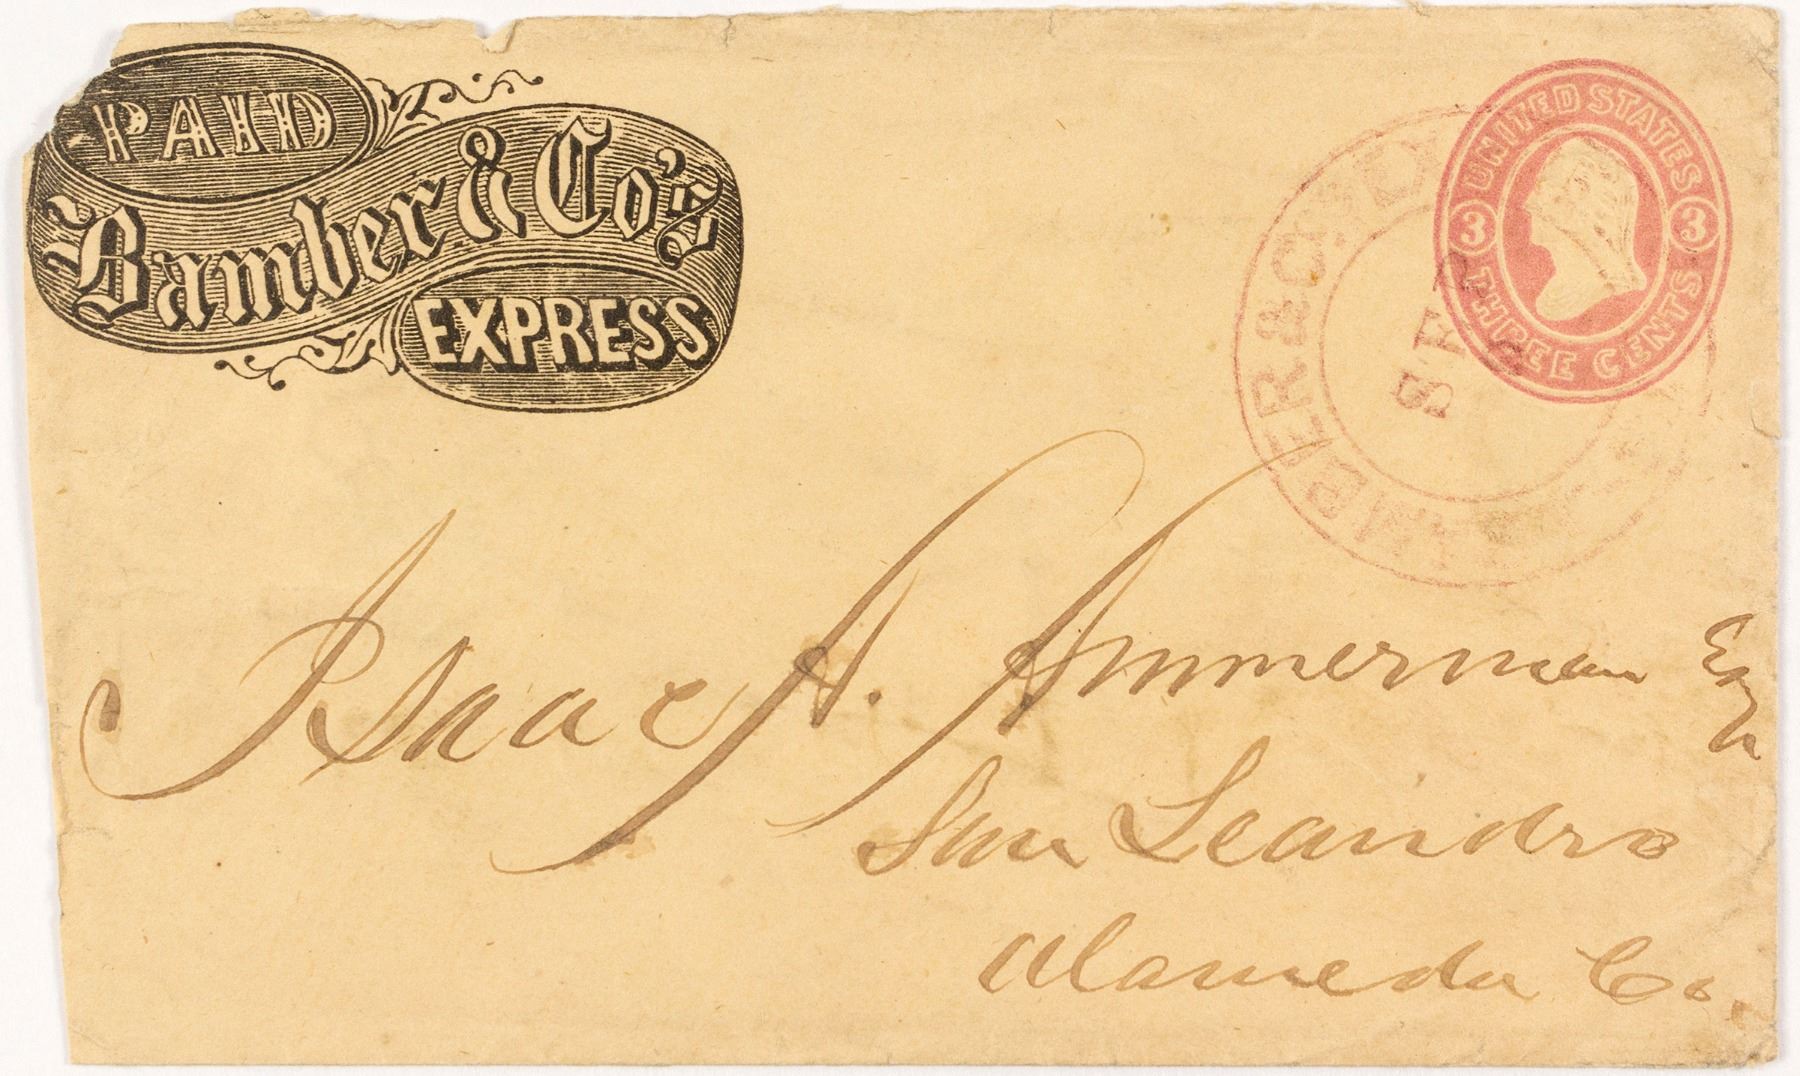 PAID
Bamber & Co's
EXPRESS
UNITED STATES
3 3
THREE CENTS
BAMBER & CO'S EX
SEP
Isaac A. Ammerman Esq
San Leandro
Alameda Co.